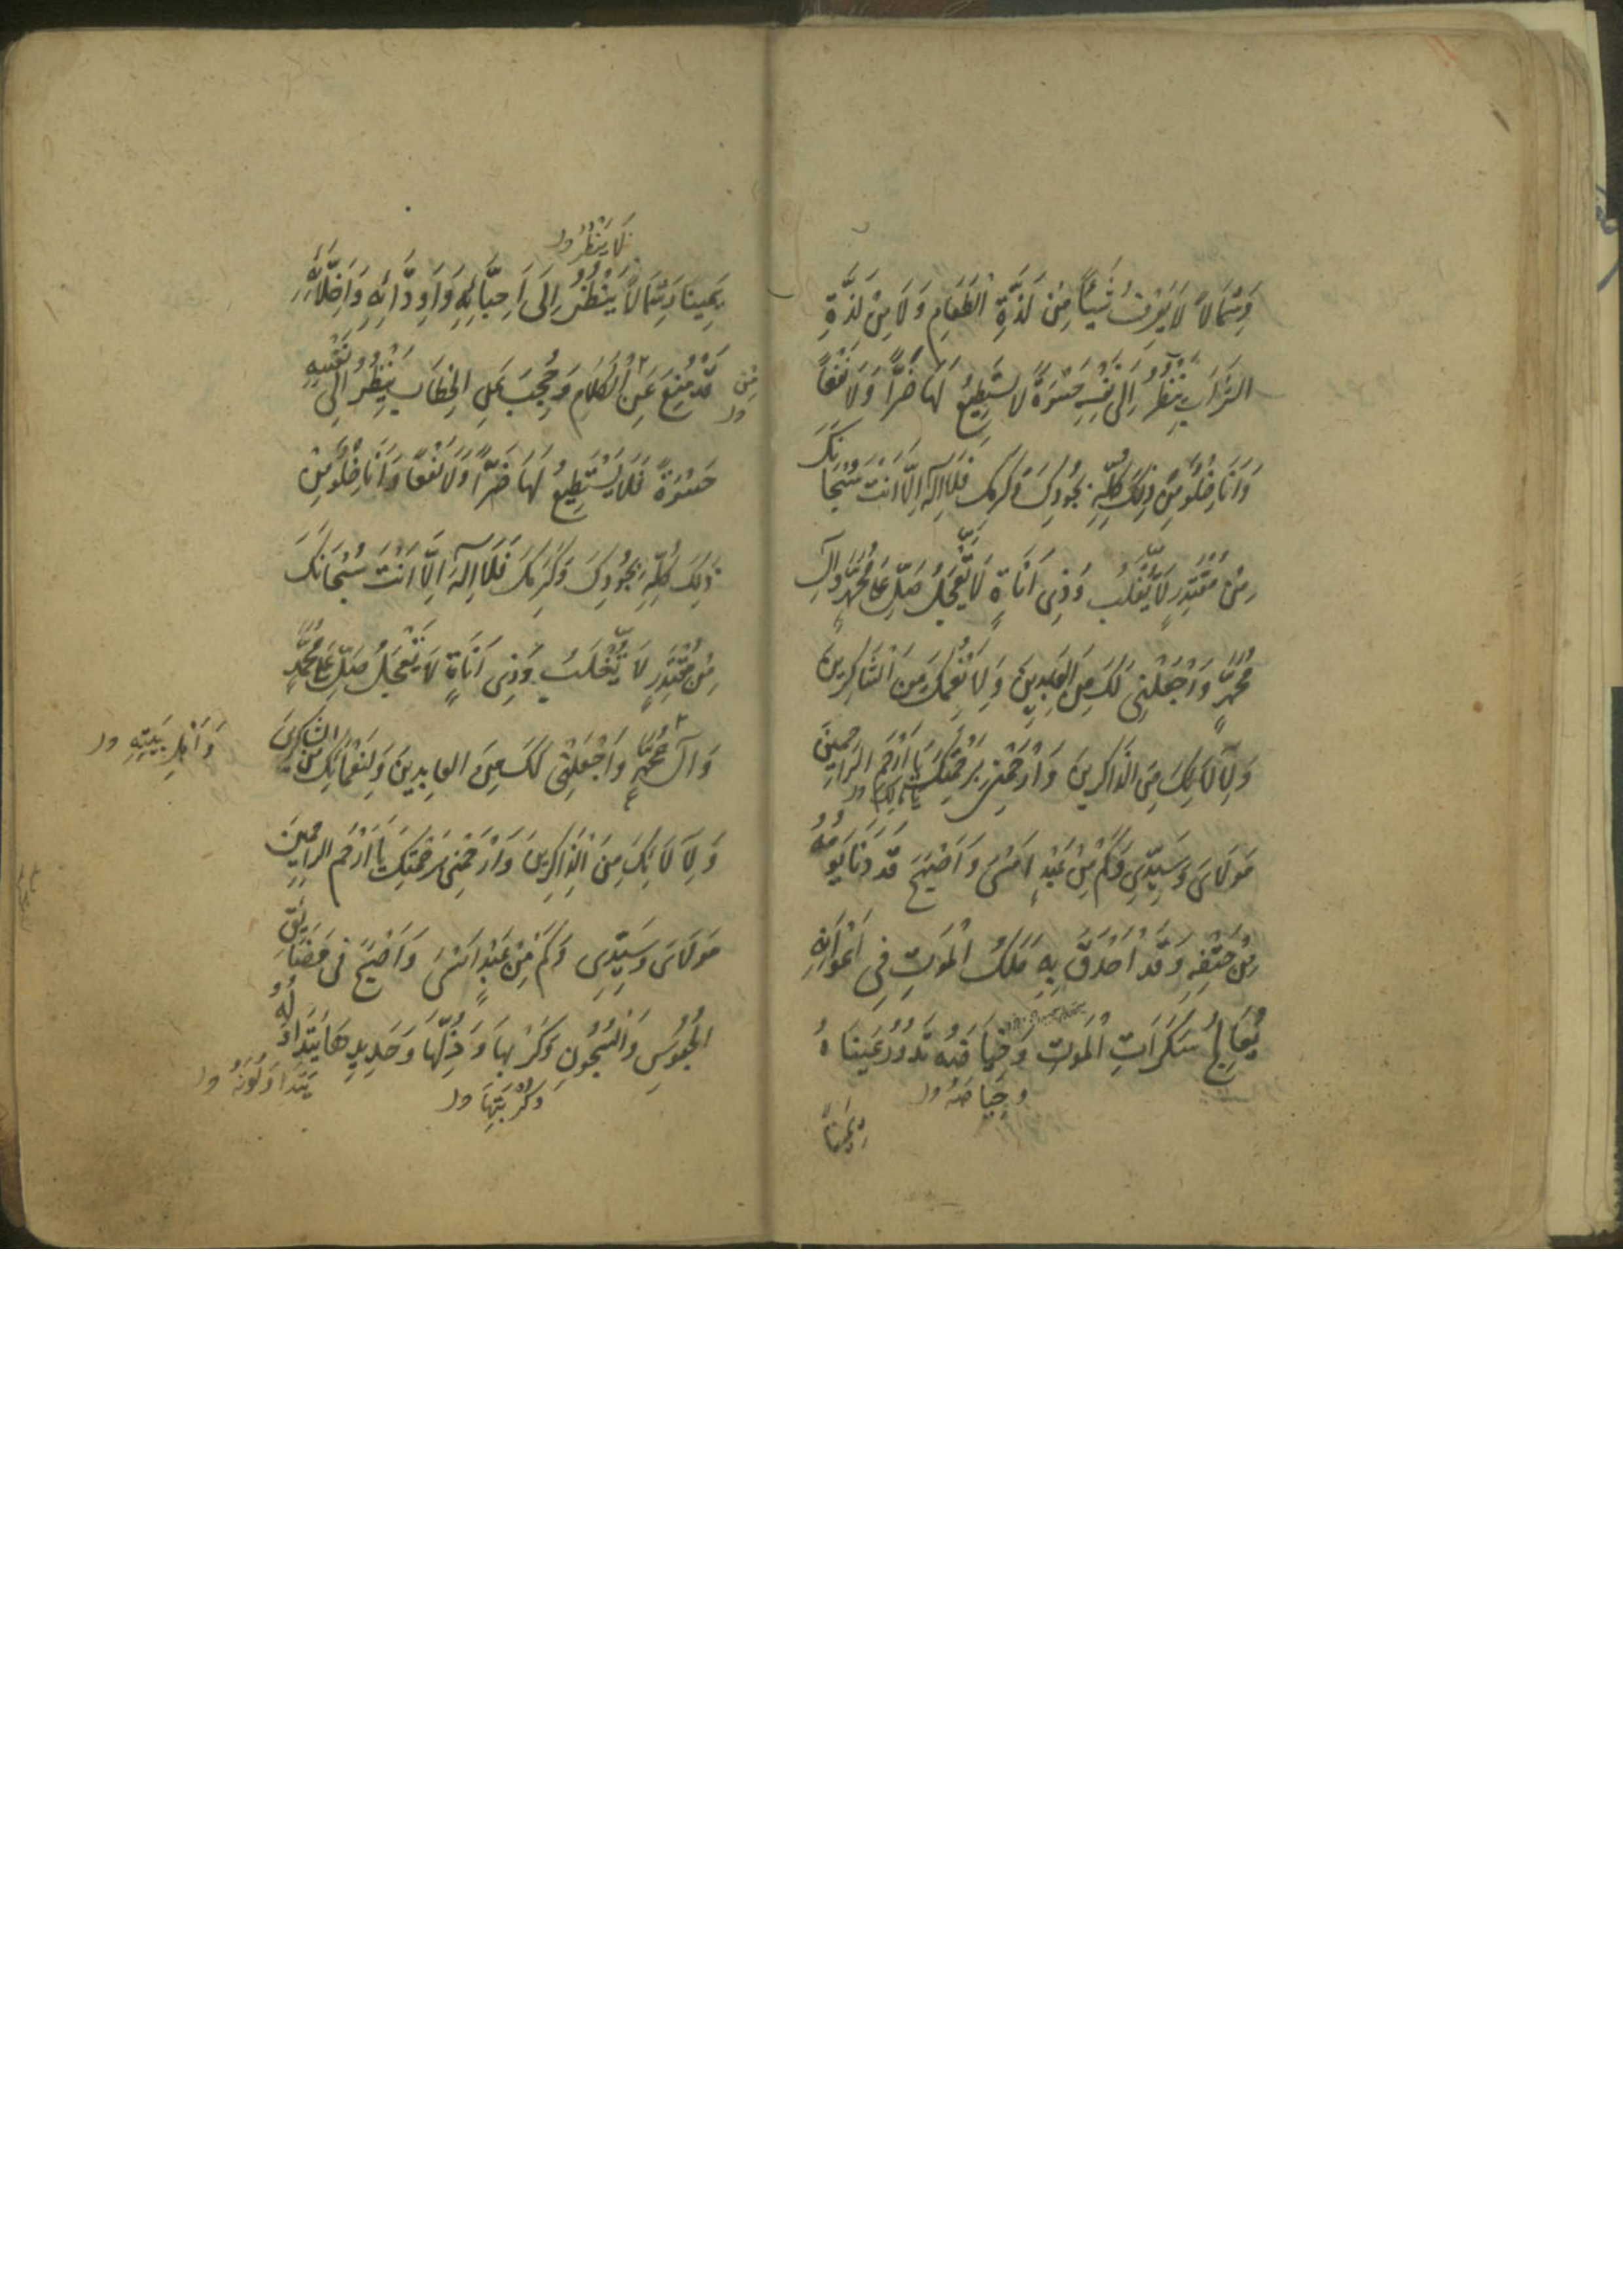 وَشِمَالًا لَا يَعْرِفُ شَيْئًا مِنْ لَذَّةِ الطَّعَامِ وَلَا مِنْ لَذَّةِ
الشَّرَابِ يَنْظُرُ إِلَى نَفْسِهِ حَسْرَةً لَا يَسْتَطِيعُ لَهَا ضَرًّا وَلَا نَفْعًا
وَأَنَا خِلْوٌ مِنْ ذٰلِكَ كُلِّهِ بِجُودِكَ وَكَرَمِكَ فَلَا إِلٰهَ إِلَّا أَنْتَ سُبْحَانَكَ
مِنْ مُقْتَدِرٍ لَا يُغْلَبُ وَذِي أَنَاةٍ لَا يَعْجَلُ صَلِّ عَلَى مُحَمَّدٍ وَآلِ
مُحَمَّدٍ وَاجْعَلْنِي لَكَ مِنَ الْعَابِدِينَ وَلِأَنْعُمِكَ مِنَ الشَّاكِرِينَ
وَلِآلَائِكَ مِنَ الذَّاكِرِينَ وَارْحَمْنِي بِرَحْمَتِكَ يَا أَرْحَمَ الرَّاحِمِينَ
يَا مَالِكِ ور
مَوْلَايَ وَسَيِّدِي وَكَمْ مِنْ عَبْدٍ أَمْسَى وَأَصْبَحَ قَدْ دَنَا يَوْمُهُ
مِنْ حَتْفِهِ وَقَدْ أَحْدَقَ بِهِ مَلَكُ الْمَوْتِ فِي أَعْوَانِهِ
يُعَالِجُ سَكَرَاتِ الْمَوْتِ وَحِيَاضَهُ تَدُورُ عَيْنَاهُ
وَحِيَاضَهُ ور
يَمِينًا
لَا يَنْظُرُ ور
يَمِينًا وَشِمَالًا يَنْظُرُ إِلَى أَحِبَّائِهِ وَأَوِدَّائِهِ وَأَخِلَّائِهِ
مِنَ ور
قَدْ مُنِعَ عَنِ الْكَلَامِ وَحُجِبَ عَنِ الْخِطَابِ يَنْظُرُ إِلَى نَفْسِهِ
حَسْرَةً فَلَا يَسْتَطِيعُ لَهَا ضَرًّا وَلَا نَفْعًا وَأَنَا خِلْوٌ مِنْ
ذٰلِكَ كُلِّهِ بِجُودِكَ وَكَرَمِكَ فَلَا إِلٰهَ إِلَّا أَنْتَ سُبْحَانَكَ
مِنْ مُقْتَدِرٍ لَا يُغْلَبُ وَذِي أَنَاةٍ لَا يَعْجَلُ صَلِّ عَلَى مُحَمَّدٍ
وَآلِ مُحَمَّدٍ وَاجْعَلْنِي لَكَ مِنَ الْعَابِدِينَ وَلِنَعْمَائِكَ مِنَ الشَّاكِرِينَ
وَأَهْلِ بَيْتِهِ ور
وَلِآلَائِكَ مِنَ الذَّاكِرِينَ وَارْحَمْنِي بِرَحْمَتِكَ يَا أَرْحَمَ الرَّاحِمِينَ
مَوْلَايَ وَسَيِّدِي وَكَمْ مِنْ عَبْدٍ أَمْسَى وَأَصْبَحَ فِي مَضَائِقِ
الْحُبُوسِ وَالسُّجُونِ وَكَرْبِهَا وَذُلِّهَا وَحَدِيدِهَا يَتَدَاوَلُهُ
يَتَدَاوَلُونَهُ ور
وَكُرْبَتِهَا ور